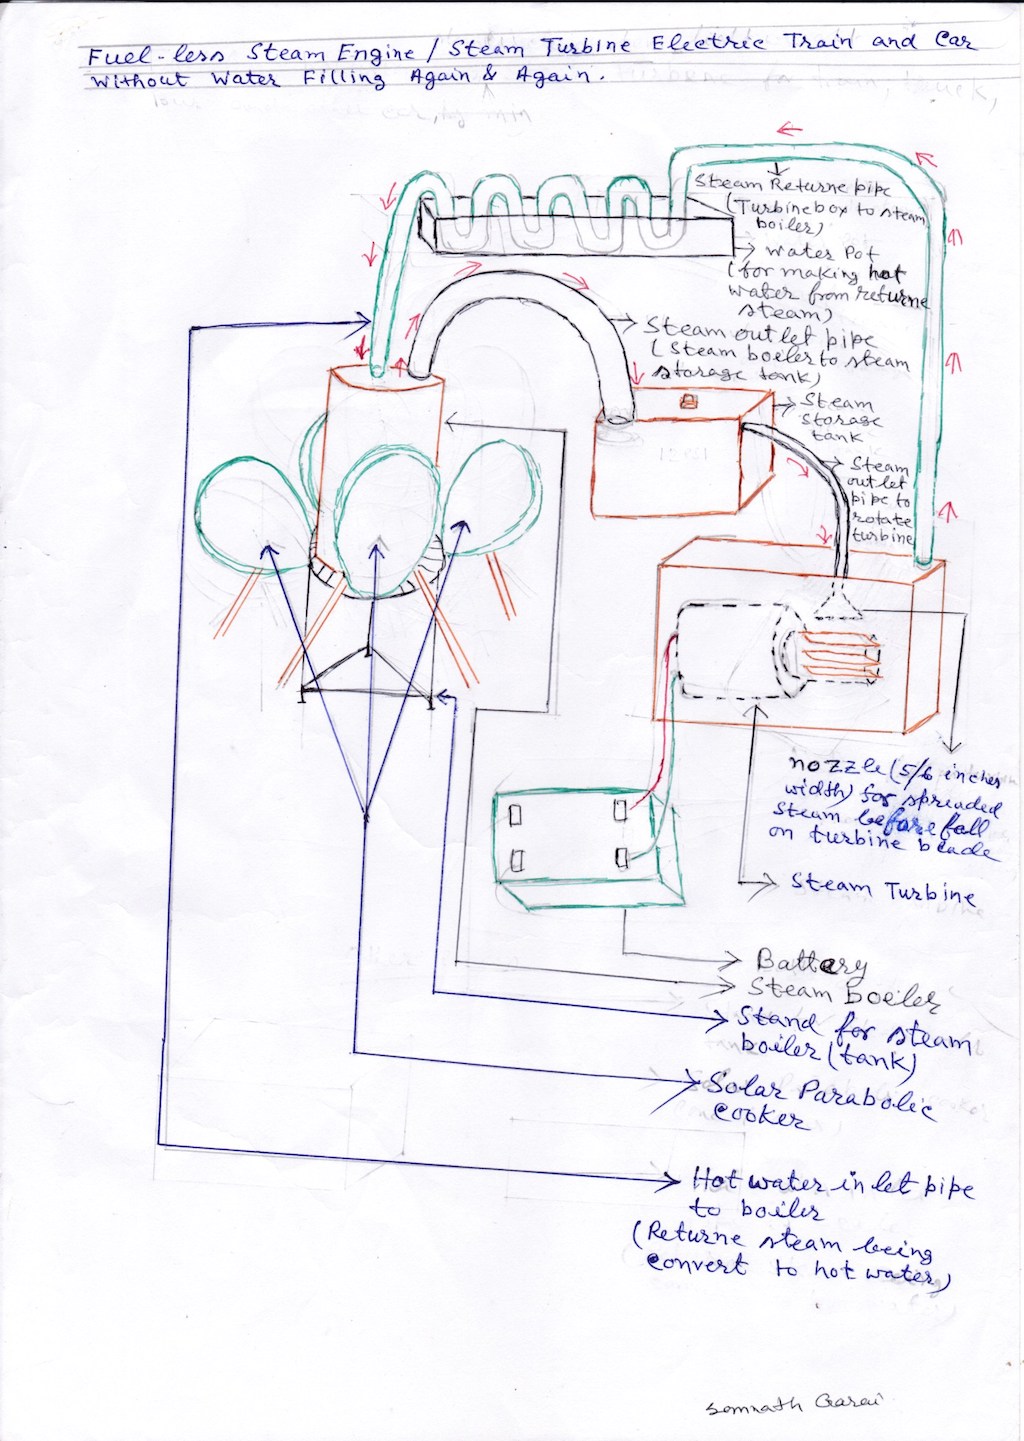 Fuel-less Steam Engine / Steam Turbine Electric Train and Car
Without Water Filling Again & Again.
Steam Returne pipe
(Turbine box to steam
boiler)
Water Pot
(for making hot
water from returne
steam)
Steam out let pipe
(Steam boeler to steam
storage tank)
Steam
storage
tank
Steam
out let
pipe to
rotate
turbine
nozzle (5/6 inches
width) for spreaded
steam before fall
on turbine blade
Steam Turbine
Battery
Steam boeler
Stand for steam
boiler (tank)
Solar Parabolic
cooker
Hot water in let pipe
to boiler
(Returne steam being
convert to hot water)
Somnath Garai